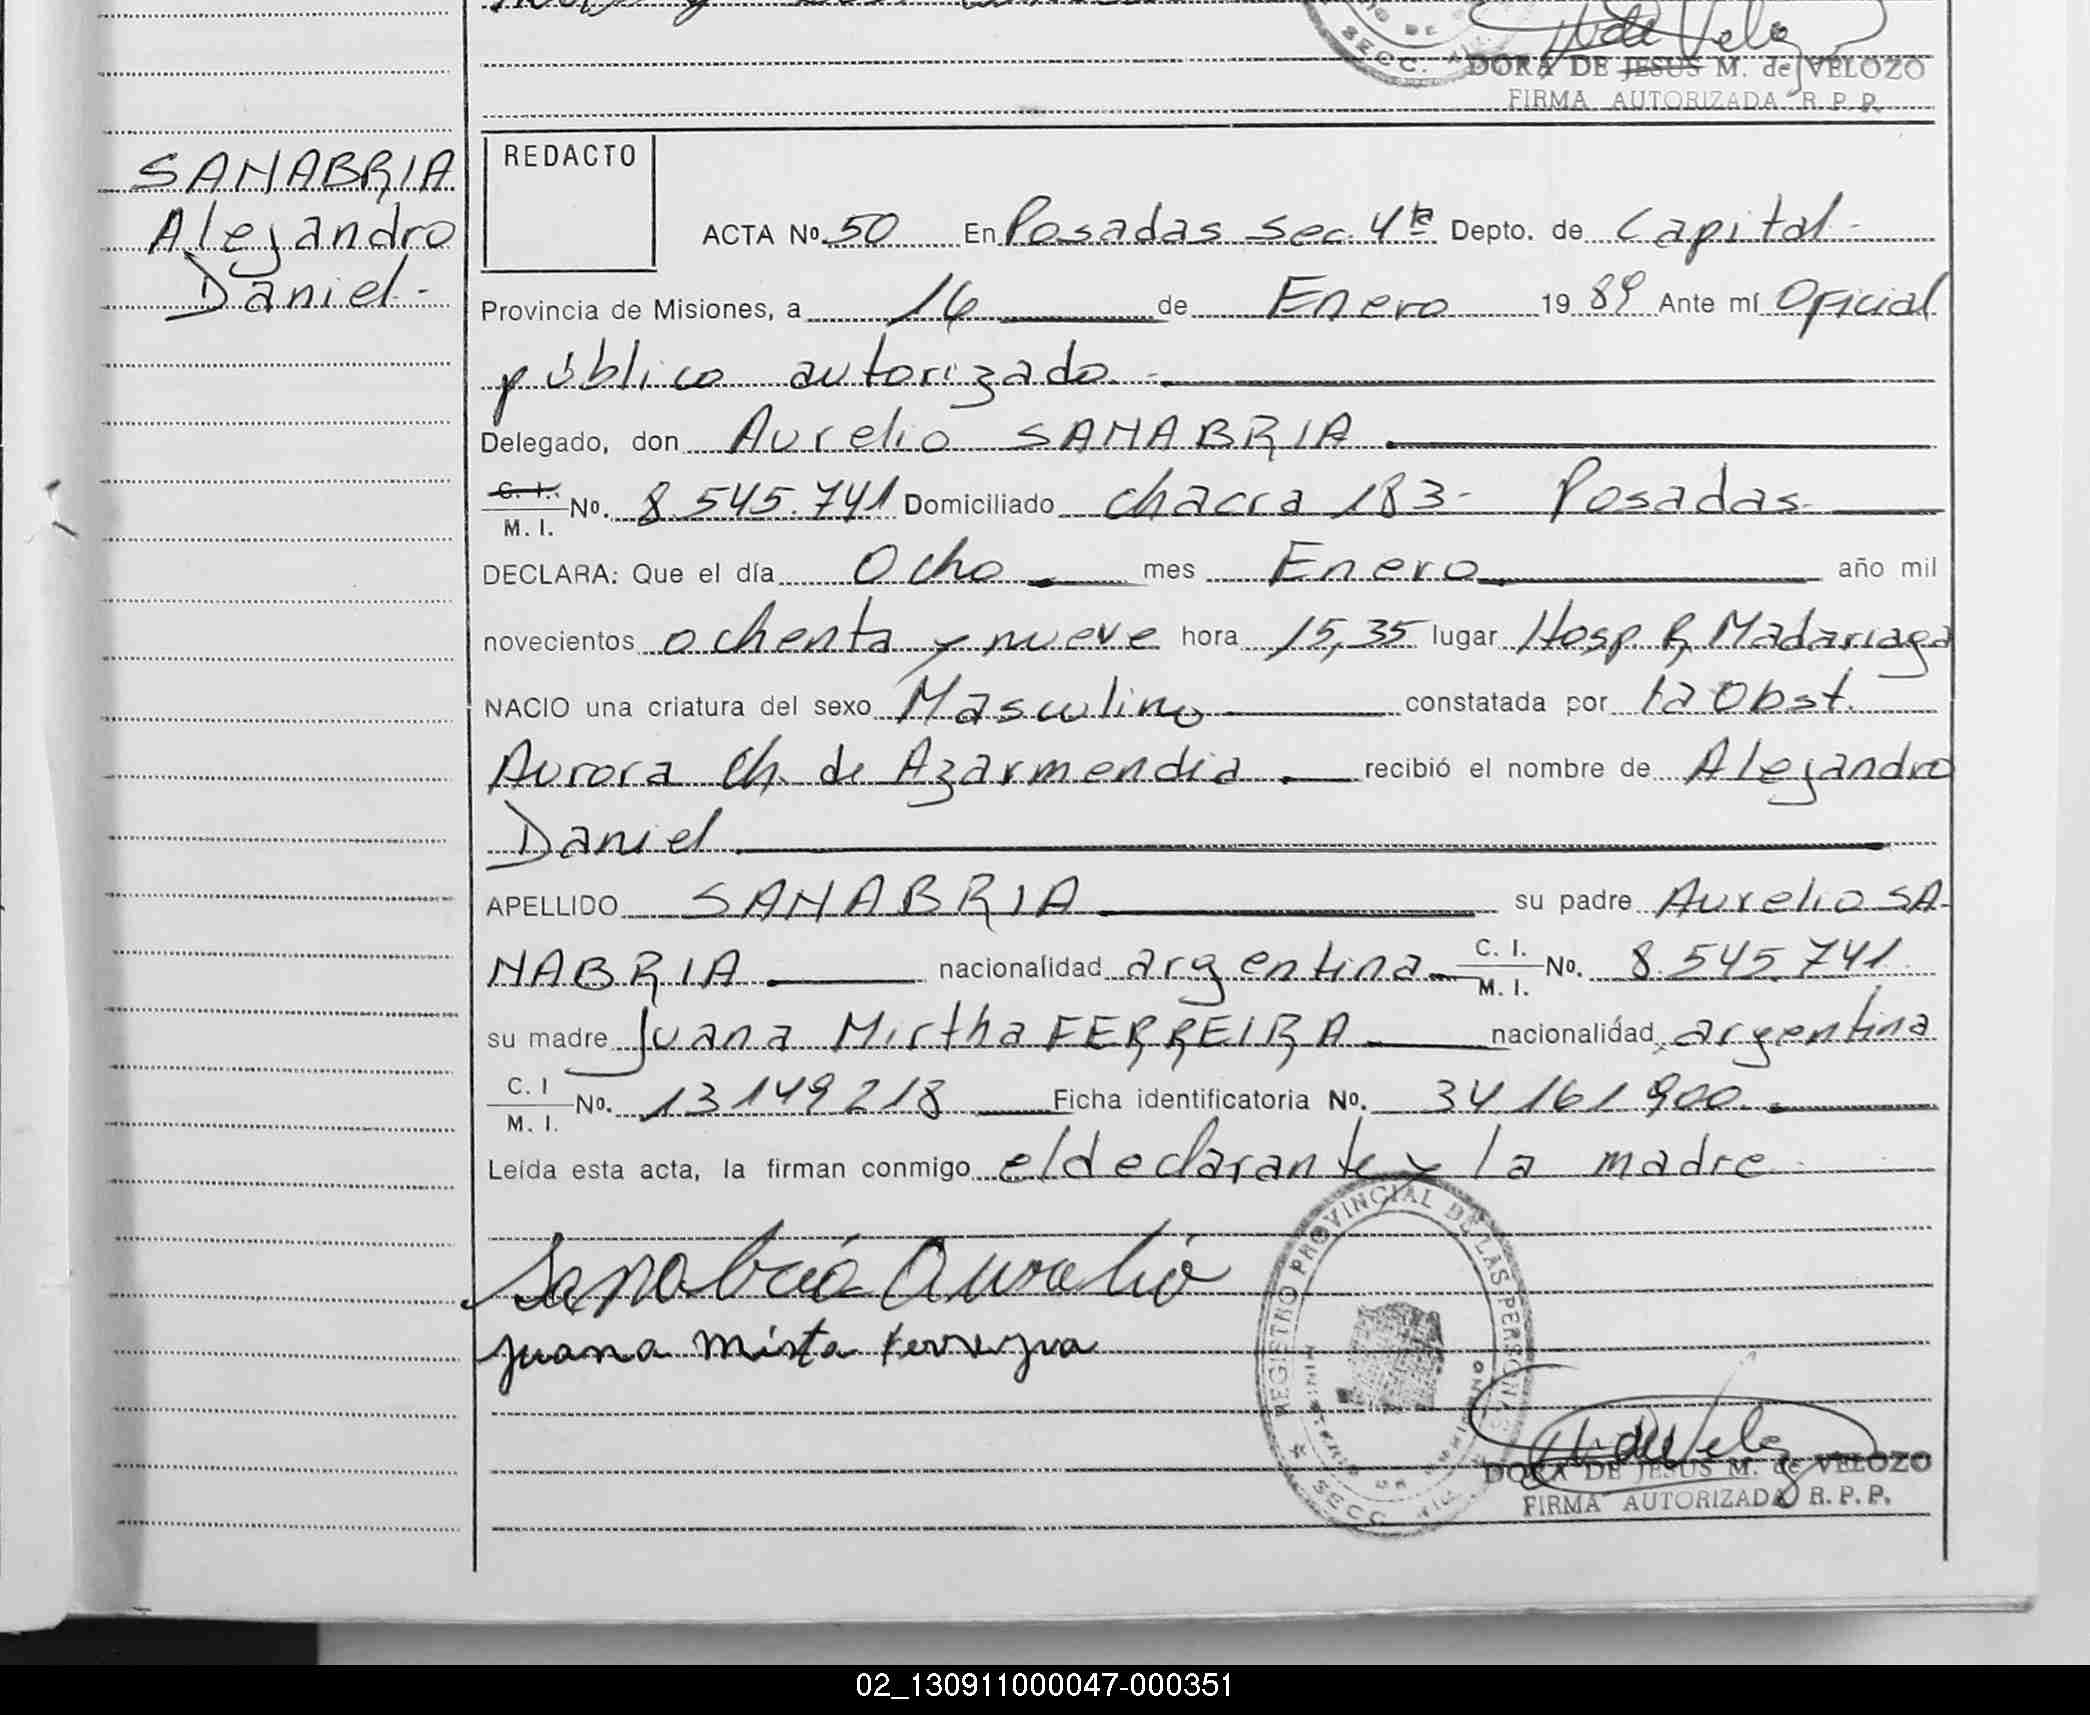 DORA DE JESUS M. de VELOZO
FIRMA AUTORIZADA R. P. P.
SANABRIA
Alejandro
Daniel.-
REDACTO
ACTA No. 50 En Posadas Sec. 4ta Depto. de Capital-
Provincia de Misiones, a 16 de Enero 19 89 Ante mí Oficial
público autorizado.-
Delegado, don Aurelio SANABRIA
C. I. M. I. No. 8.545.741 Domiciliado chacra 183- Posadas-
DECLARA: Que el día Ocho mes Enero año mil
novecientos ochenta y nueve hora 15,35 lugar Hosp. R. Madariaga
NACIO una criatura del sexo Masculino constatada por la Obst.
Aurora Ch. de Azarmendia. recibió el nombre de Alejandro
Daniel
APELLIDO SANABRIA su padre Aurelio SA-
NABRIA nacionalidad argentina C. I. M. I. No. 8.545.741.
su madre Juana Mirtha FERREIRA nacionalidad argentina
C. I M. I. No. 13149218 Ficha identificatoria No. 34.161.900.
Leída esta acta, la firman conmigo el declarante y la madre.
Sanabria Aurelio
Juana Mirta Ferreyra
REGISTRO PROVINCIAL DE LAS PERSONAS
SECC.
DORA DE JESUS M. de VELOZO
FIRMA AUTORIZADA R. P. P.
02_130911000047-000351